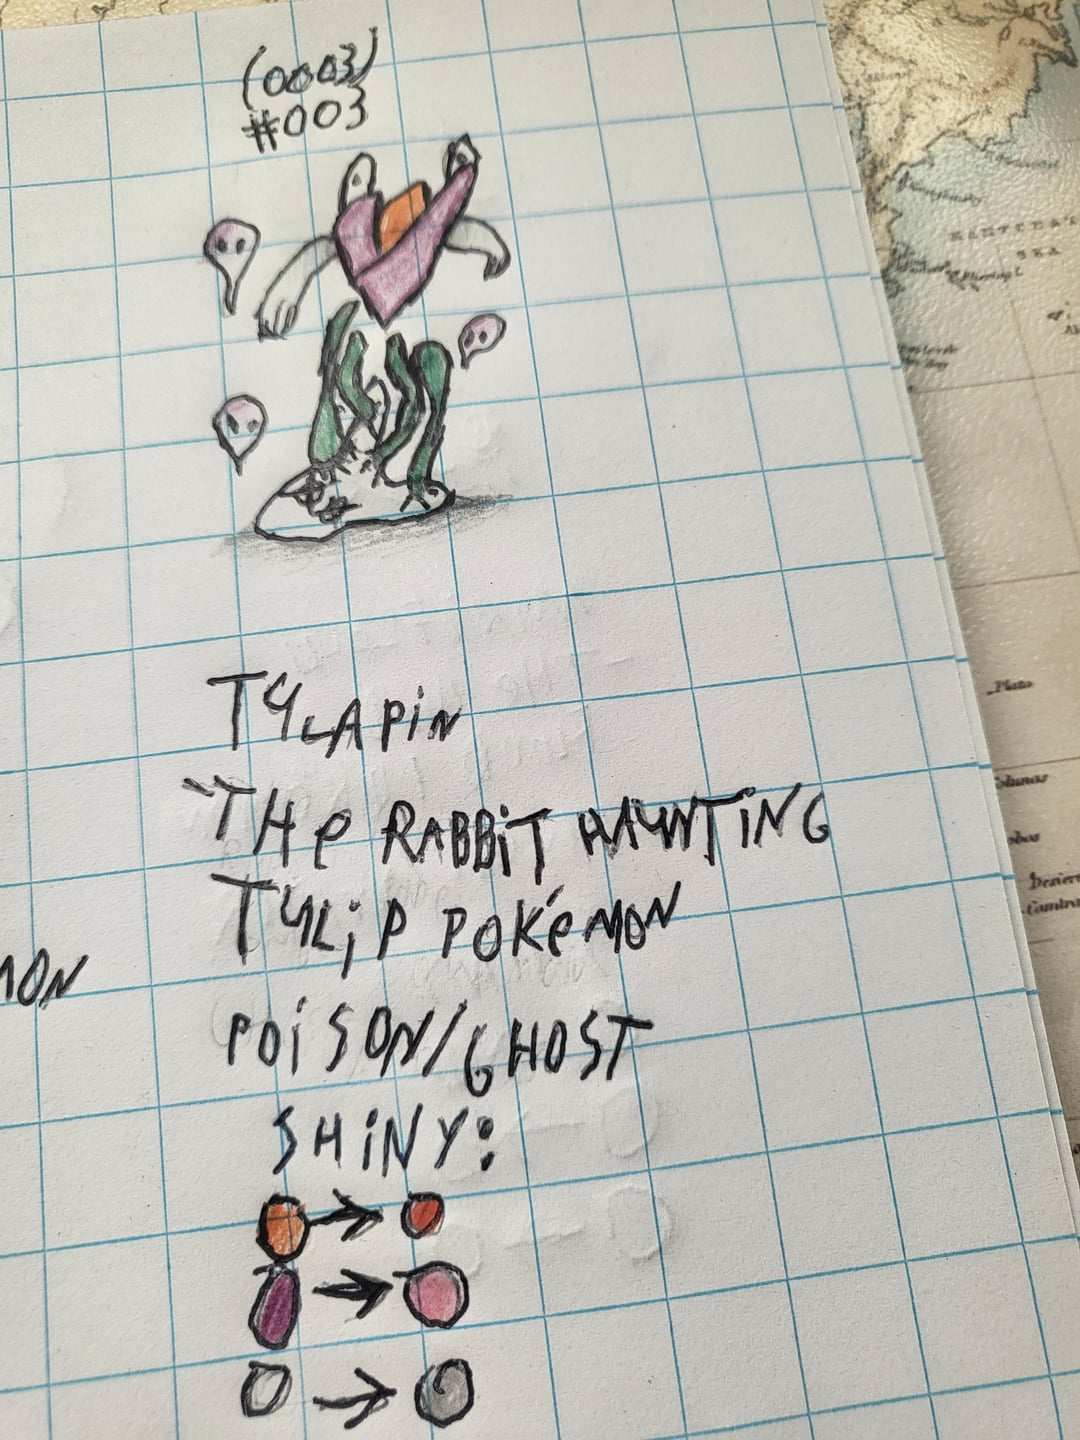 (0003)
#003
TYLAPiN
THe RABBiT HAUNTiNG
TYLiP POKéMON
POiSON/GHOST
SHiNY:
MON
Plato